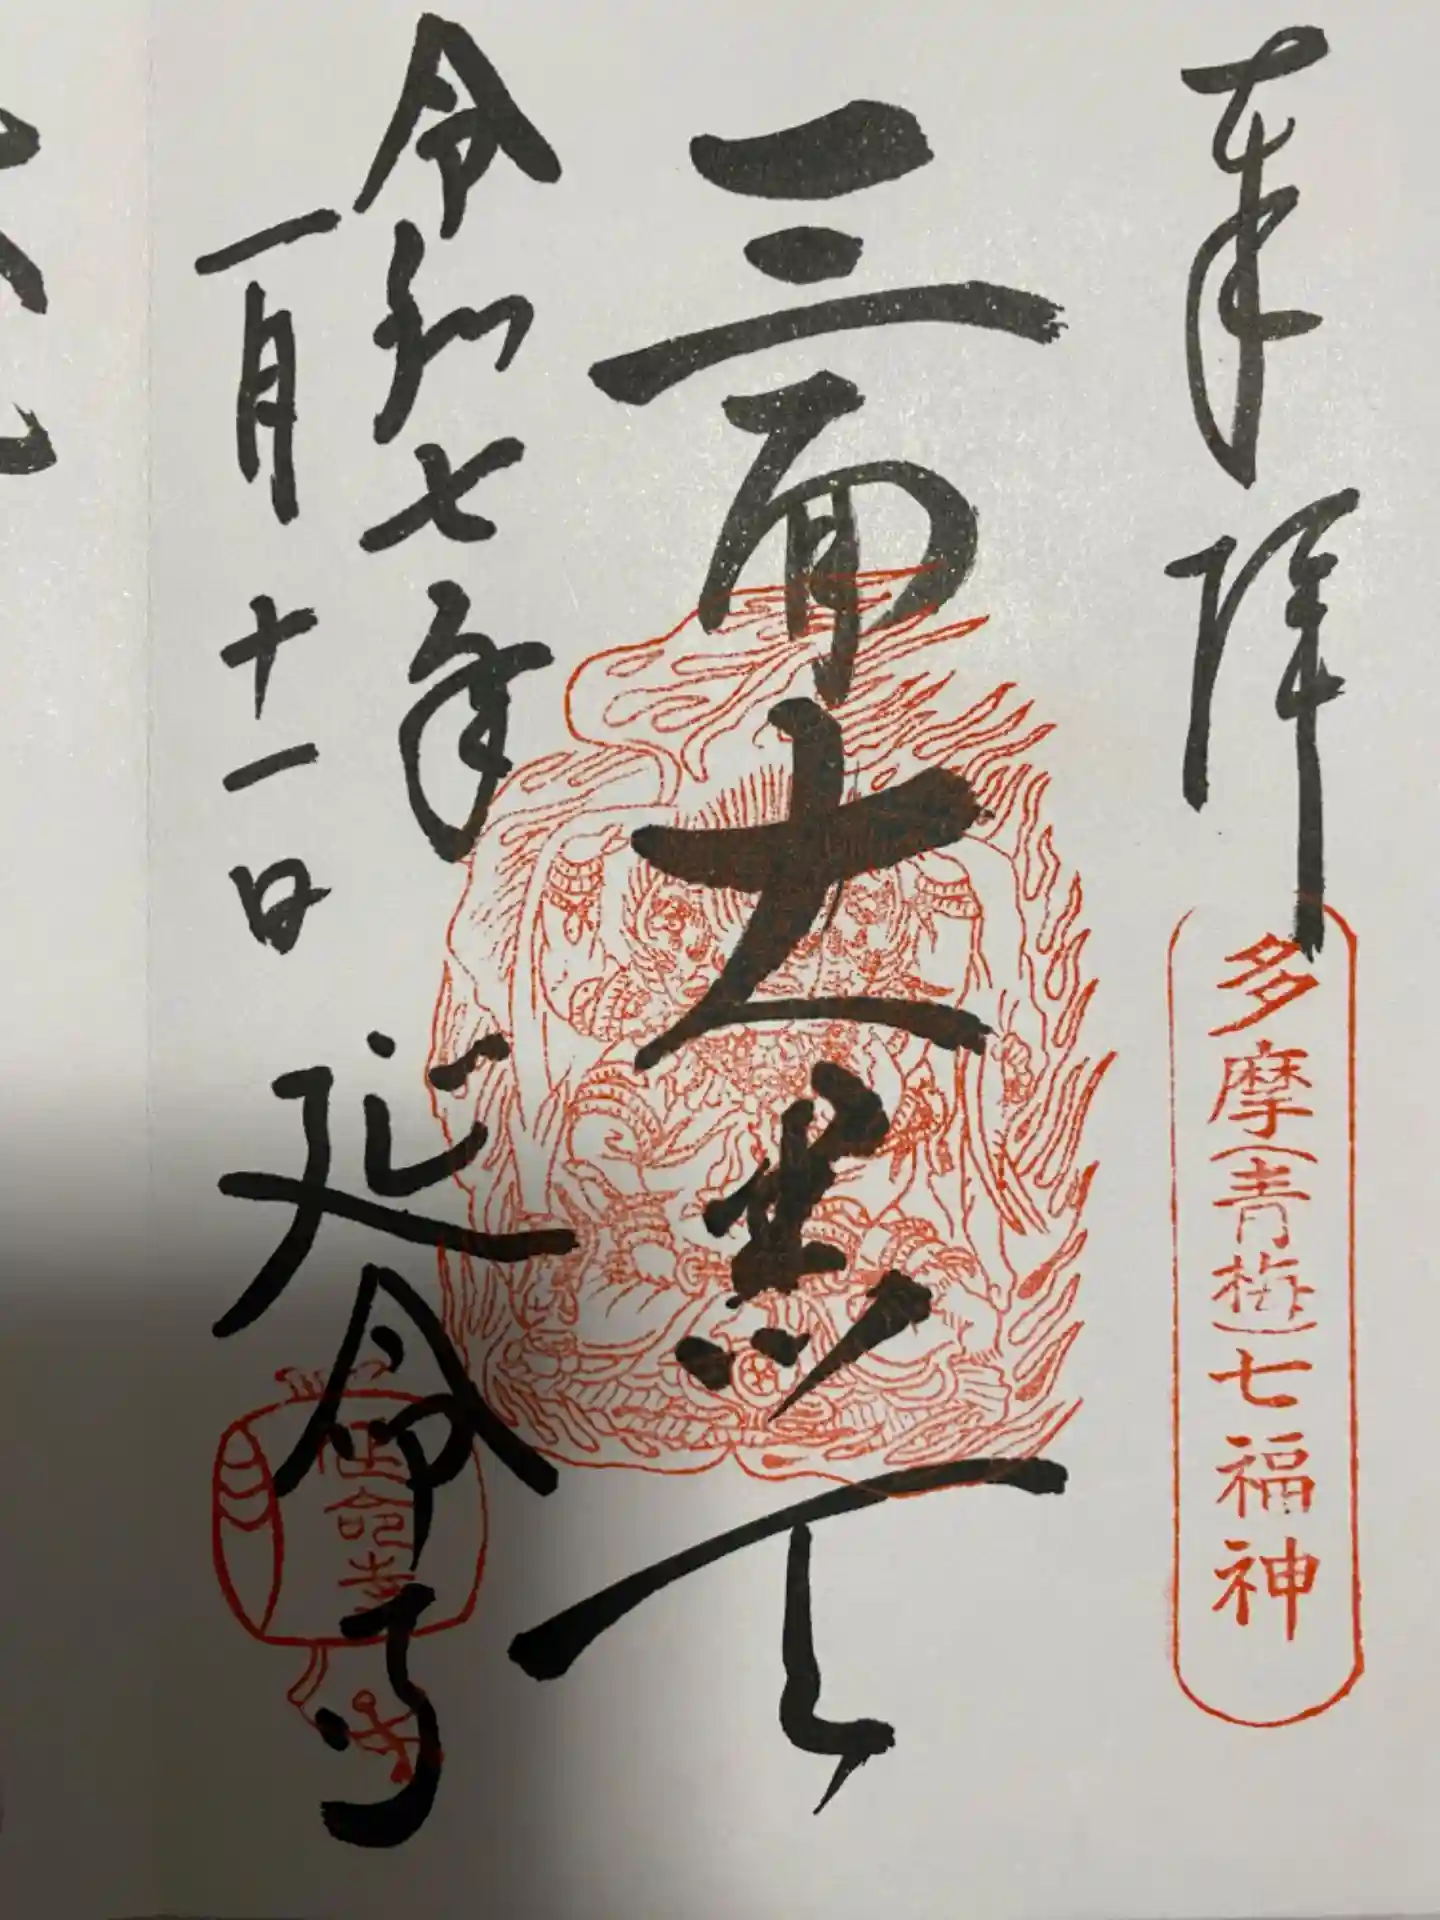 奉拝
多摩(青梅)七福神
三面大黒天
令和七年
一月十一日
延命寺
延命寺